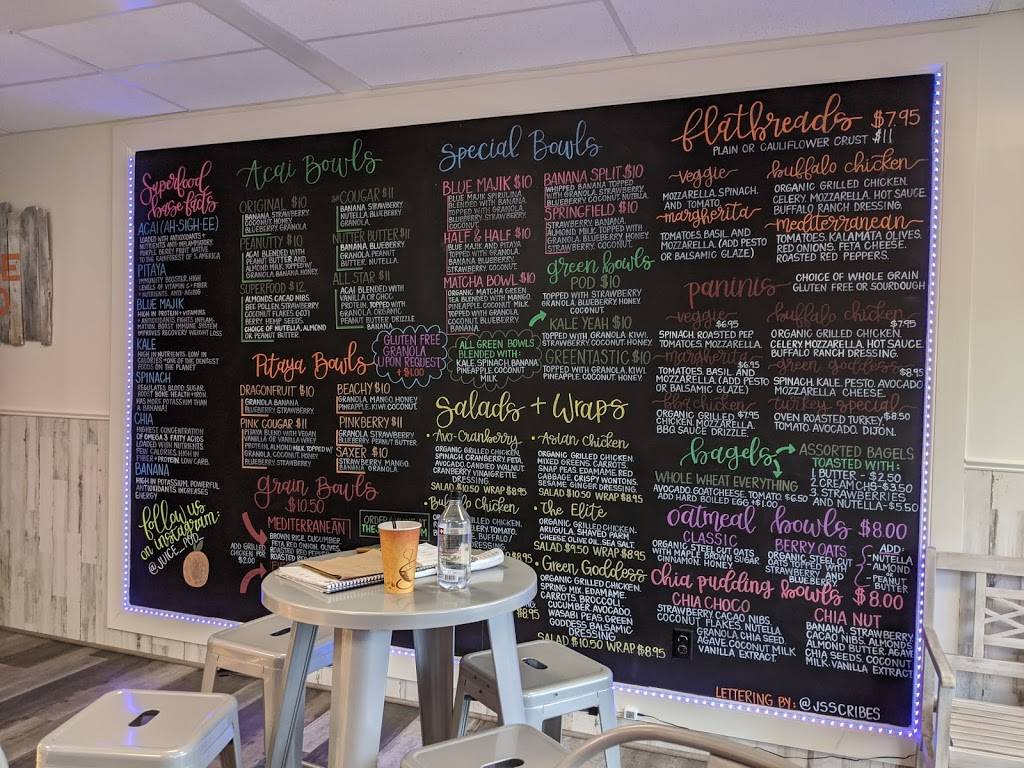 Superfood
base facts
ACAI (AH-SIGH-EE)
LOADED WITH ANTIOXIDANTS +
NUTRIENTS ANTI-INFLAMMATORY
PURPLE BERRY BUILT NATIVE
TO THE RAINFOREST OF S. AMERICA
PITAYA
IMMUNITY BOOSTER, HIGH
LEVELS OF VITAMIN C + FIBER
+ NUTRIENTS. ANTI-AGING
BLUE MAJIK
HIGH IN PROTEIN + VITAMINS
+ ANTIOXIDANTS. FIGHTS INFLAM-
MATION, BOOST IMMUNE SYSTEM
IMPROVES RECOVERY TIME
KALE
HIGH IN NUTRIENTS, LOW IN
CALORIES + ONE OF THE DENSEST
FOODS ON THE PLANET
SPINACH
REGULATES BLOOD SUGAR,
BOOST BONE HEALTH + IRON,
HAS MORE POTASSIUM THAN
A BANANA!
CHIA
HIGHEST CONCENTRATION
OF OMEGA 3 FATTY ACIDS
LOADED WITH NUTRIENTS
FEW CALORIES. HIGH IN
FIBER + PROTEIN, LOW CARB.
BANANA
HIGH IN POTASSIUM, POWERFUL
ANTIOXIDANTS. INCREASES
ENERGY
follow us
on instagram:
@JUICE_POD
Acai Bowls
ORIGINAL $10
BANANA, STRAWBERRY,
COCONUT, HONEY,
BLUEBERRY, GRANOLA
PEANUTTY $10
ACAI BLENDED WITH
PEANUT BUTTER AND
ALMOND MILK. TOPPED W/
GRANOLA, BANANA, HONEY
SUPERFOOD $12
ALMONDS, CACAO NIBS,
BEE POLLEN, STRAWBERRY,
COCONUT FLAKES, GOJI
BERRY, CHIA SEEDS.
CHOICE OF NUTELLA, ALMOND
OR PEANUT BUTTER.
THE COUGAR $11
BANANA, STRAWBERRY,
NUTELLA, BLUEBERRY,
GRANOLA
NUTTER BUTTER $11
BANANA, BLUEBERRY,
GRANOLA, PEANUT
BUTTER, NUTELLA.
ALL STAR $11
ACAI BLENDED WITH
VANILLA OR CHOC
PROTEIN, TOPPED WITH
GRANOLA, ORGANIC
PEANUT BUTTER DRIZZLE,
BANANA
GLUTEN FREE
GRANOLA
UPON REQUEST
+ $1.00
Pitaya Bowls
DRAGONFRUIT $10
GRANOLA, BANANA,
BLUEBERRY, STRAWBERRY.
PINK COUGAR $11
PITAYA BLEND WITH VEGAN
VANILLA OR VANILLA WHEY
PROTEIN, ALMOND MILK, TOPPED W/
GRANOLA, COCONUT, HONEY
BLUEBERRY, STRAWBERRY.
BEACHY $10
GRANOLA, MANGO, HONEY,
PINEAPPLE, KIWI, COCONUT.
PINKBERRY $11
GRANOLA, STRAWBERRY,
BLUEBERRY, PEANUT BUTTER.
SAXER $10
MANGO, STRAWBERRY,
BANANA, GRANOLA
Grain Bowls
$10.50
MEDITERRANEAN
BROWN RICE, CUCUMBER,
FETA, RED ONION, OLIVES,
ADD GRILLED
CHICKEN FOR
$2.00
Special Bowls
BLUE MAJIK $10
BLUE MAJIK SPIRULINA
BLENDED WITH BANANA.
TOPPED WITH GRANOLA,
COCONUT, BLUEBERRY,
STRAWBERRY.
HALF & HALF $10
BLUE MAJIK AND PITAYA.
TOPPED WITH GRANOLA,
BANANA, BLUEBERRY,
STRAWBERRY, COCONUT.
MATCHA BOWL $10
ORGANIC MATCHA GREEN
TEA BLENDED WITH MANGO,
PINEAPPLE, COCONUT MILK.
TOPPED WITH GRANOLA,
COCONUT, BLUEBERRY,
BANANA
BANANA SPLIT $10
WHIPPED BANANA TOPPED
WITH GRANOLA, STRAWBERRY,
BLUEBERRY, NUTELLA
SPRINGFIELD $10
STRAWBERRY, BANANA,
ALMOND MILK. TOPPED WITH
GRANOLA, BLUEBERRY, HONEY,
COCONUT.
green bowls
POD $10
TOPPED WITH STRAWBERRY,
GRANOLA, BLUEBERRY, HONEY.
KALE YEAH $10
TOPPED WITH GRANOLA, KIWI,
COCONUT, STRAWBERRY, HONEY.
GREENTASTIC $10
TOPPED WITH GRANOLA, KIWI,
PINEAPPLE, COCONUT, HONEY.
ALL GREEN BOWLS
BLENDED WITH:
KALE, SPINACH, BANANA,
PINEAPPLE, COCONUT
MILK
Salads + Wraps
• Avo-Cranberry
ORGANIC GRILLED
CHICKEN, ROMAINE,
SPINACH, CRANBERRY, FETA,
AVOCADO, CANDIED WALNUT,
CRANBERRY VINAIGRETTE
DRESSING
SALAD $10.50 WRAP $8.95
• Buffalo Chicken
• Asian Chicken
ORGANIC GRILLED CHICKEN,
MIXED GREENS, CARROTS,
SNAP PEAS, EDAMAME, RED
CABBAGE, CRISPY WONTONS,
SESAME GINGER DRESSING.
SALAD $10.50 WRAP $8.95
• The Elite
ORGANIC GRILLED CHICKEN,
ARUGULA, SHAVED PARM
CHEESE, OLIVE OIL, SEA SALT.
SALAD $9.50 WRAP $8.95
• Green Goddess
ORGANIC GRILLED CHICKEN,
SPRING MIX, EDAMAME,
CARROTS, BROCCOLI,
CUCUMBER, AVOCADO,
WASABI PEAS, GREEN
GODDESS, BALSAMIC
DRESSING
SALAD $10.50 WRAP $8.95
flatbreads $7.95
PLAIN OR CAULIFLOWER CRUST $11
veggie
MOZZARELLA, SPINACH,
AND TOMATO.
margherita
TOMATOES, BASIL AND
MOZZARELLA. (ADD PESTO
OR BALSAMIC GLAZE)
buffalo chicken
ORGANIC GRILLED CHICKEN,
CELERY, MOZZARELLA, HOT SAUCE,
BUFFALO RANCH DRESSING.
mediterranean
TOMATOES, KALAMATA OLIVES,
RED ONIONS, FETA CHEESE,
ROASTED RED PEPPERS.
paninis
CHOICE OF WHOLE GRAIN
GLUTEN FREE OR SOURDOUGH
veggie
$6.95
SPINACH, ROASTED PEP,
TOMATOES, MOZZARELLA.
margherita
$6.95
TOMATOES, BASIL AND
MOZZARELLA (ADD PESTO
OR BALSAMIC GLAZE)
bbq chicken
ORGANIC GRILLED $7.95
CHICKEN, MOZZARELLA,
BBQ SAUCE DRIZZLE
buffalo chicken
$7.95
ORGANIC GRILLED CHICKEN,
CELERY, MOZZARELLA, HOT SAUCE,
BUFFALO RANCH DRESSING.
green goddess
$8.95
SPINACH, KALE, PESTO, AVOCADO,
MOZZARELLA CHEESE
turkey special
$8.50
OVEN ROASTED TURKEY,
TOMATO, AVOCADO, DIJON.
bagels
ASSORTED BAGELS
TOASTED WITH:
1 BUTTER - $2.50
2 CREAM CHS - $3.50
3 STRAWBERRIES
AND NUTELLA - $5.50
WHOLE WHEAT EVERYTHING
AVOCADO, GOAT CHEESE, TOMATO $6.50
ADD HARD BOILED EGG +$1.00
oatmeal bowls $8.00
CLASSIC
ORGANIC STEEL CUT OATS
WITH MAPLE, BROWN SUGAR,
CINNAMON, HONEY
BERRY OATS
ORGANIC STEEL CUT
OATS TOPPED WITH
STRAWBERRY AND
BLUEBERRY
ADD:
- NUTELLA
- ALMOND
OR
- PEANUT
BUTTER
Chia pudding bowls $8.00
CHIA CHOCO
STRAWBERRY, CACAO NIBS,
COCONUT FLAKES, NUTELLA,
GRANOLA, CHIA SEED,
AGAVE, COCONUT MILK,
VANILLA EXTRACT.
CHIA NUT
BANANA, STRAWBERRY,
CACAO NIBS, ALMONDS,
ALMOND BUTTER, AGAVE,
CHIA SEEDS, COCONUT
MILK, VANILLA EXTRACT
LETTERING BY: @JSSCRIBES